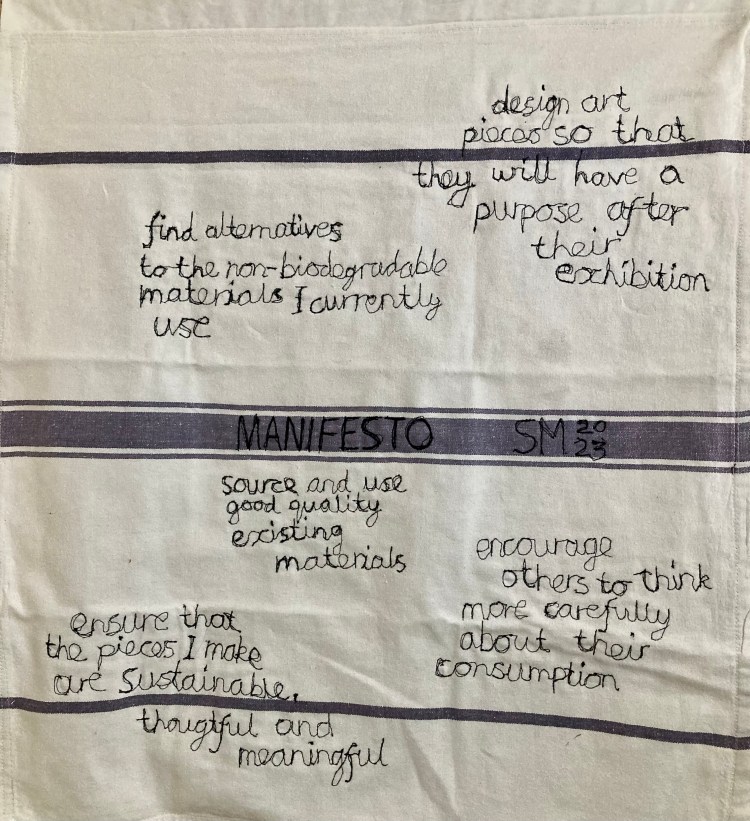 design art
pieces so that
they will have a
purpose after
their
exhibition
find alternatives
to the non-biodegradable
materials I currently
use
MANIFESTO SM 20
23
source and use
good quality
existing
materials
encourage
others to think
more carefully
about their
consumption
ensure that
the pieces I make
are sustainable,
thougtful and
meaningful